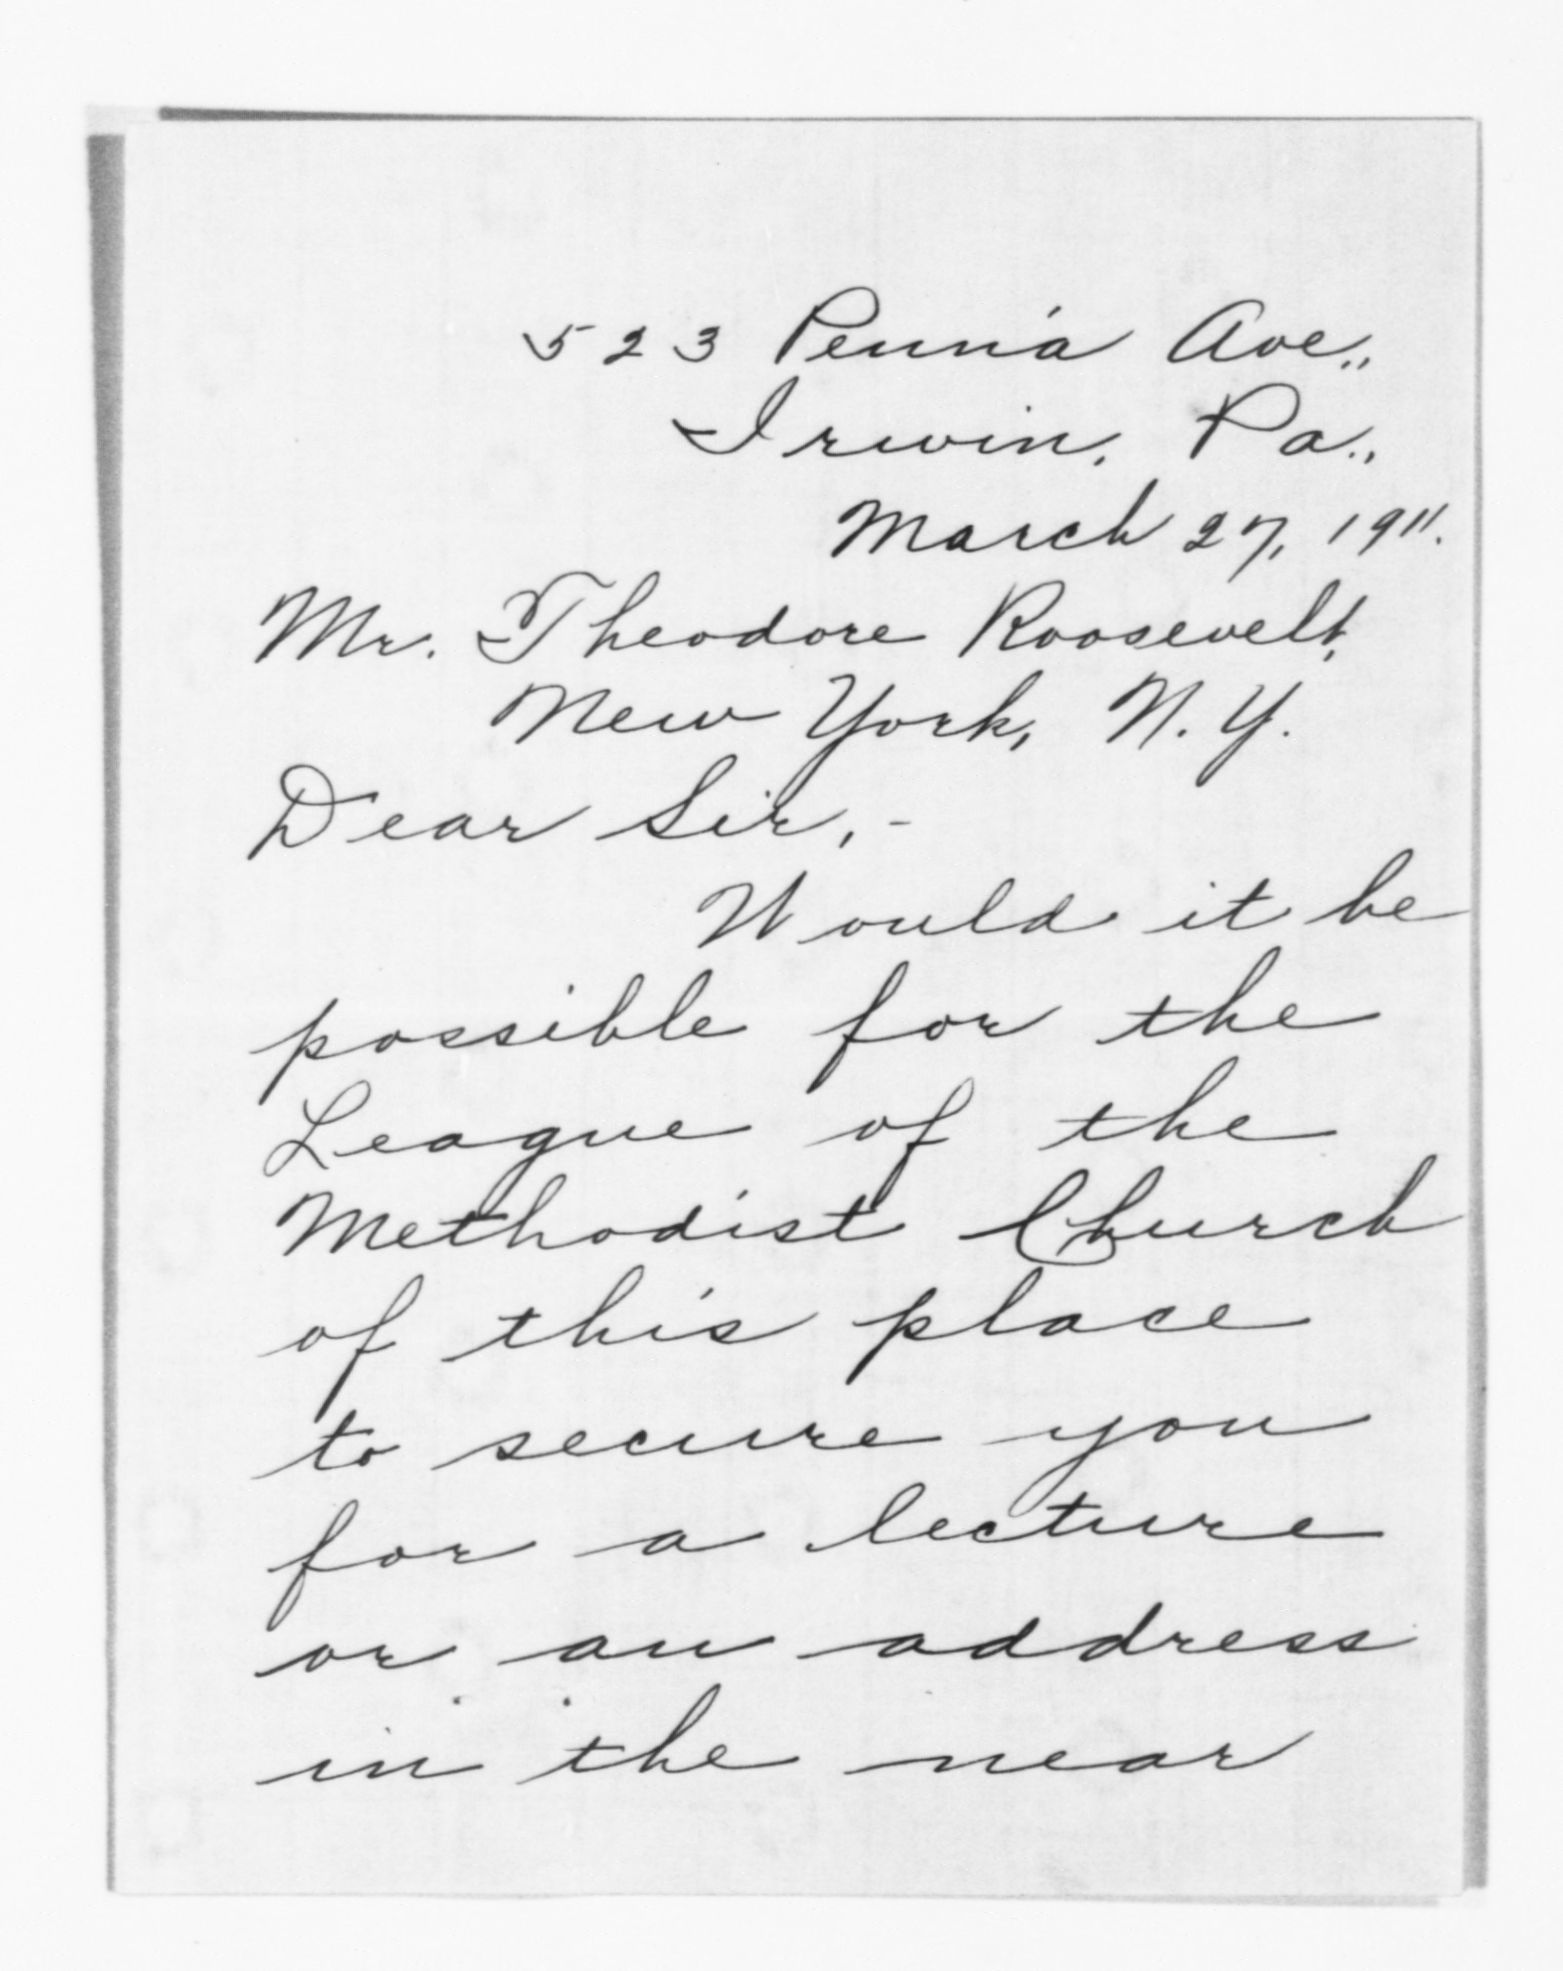 523 Penn'a Ave.,
Irwin, Pa.,
March 27, 1911.
Mr. Theodore Roosevelt,
New York, N. Y.
Dear Sir,-
Would it be
possible for the
League of the
Methodist Church
of this place
to secure you
for a lecture
or an address
in the near